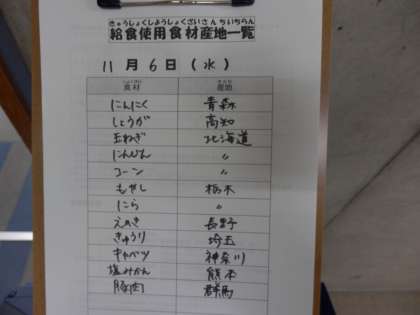 きゅうしょくしようしょくざいさんちいちらん
給食使用食材産地一覧
11月6日(水)
食材 産地
にんにく 青森
しょうが 高知
玉ねぎ 北海道
にんじん 〃
コーン 〃
もやし 栃木
にら 〃
えのき 長野
きゅうり 埼玉
キャベツ 神奈川
塩みかん 熊本
豚肉 群馬